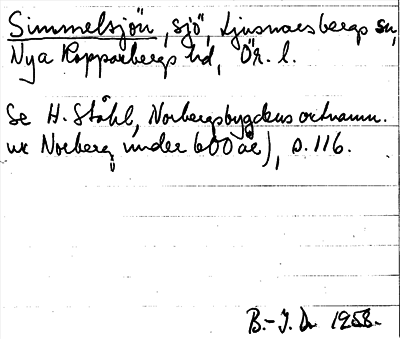 Simmelsjön, sjö, Ljusnarsbergs sn,
Nya Kopparbergs hd, Ör. l.
Se H. Ståhl, Norbergsbygdens ortnamn.
ur Norberg under 600 år), s. 116.
B.-I. D. 1958.